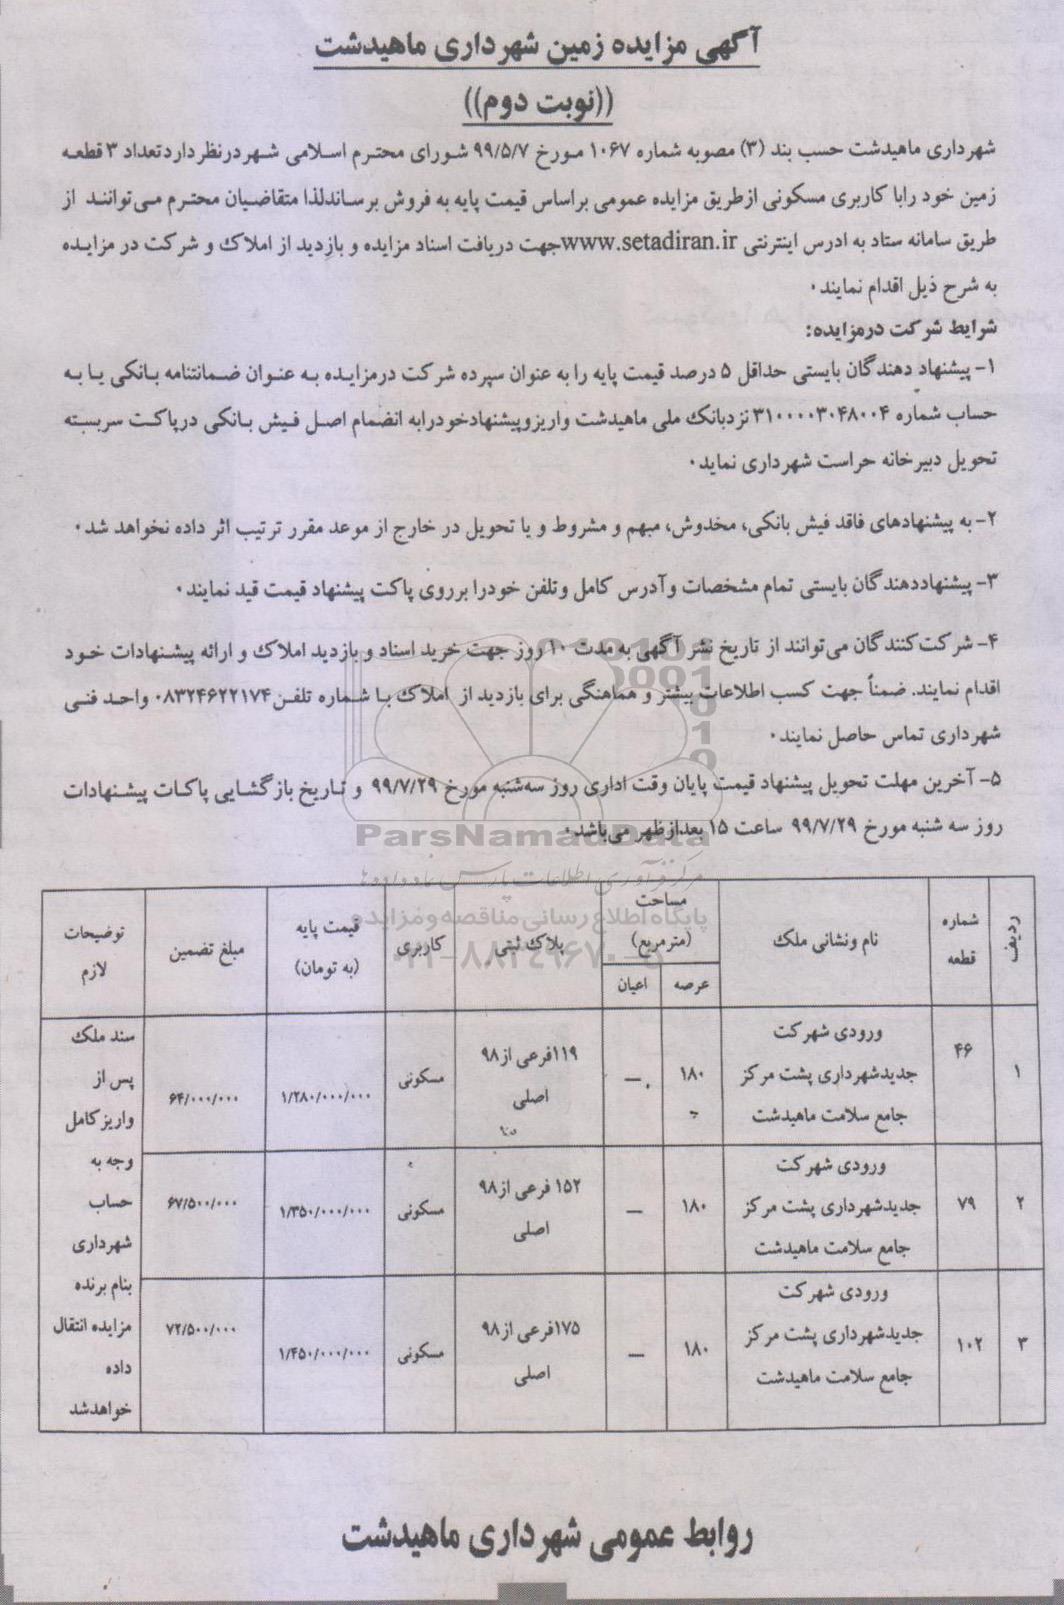 آگهی مزایده زمین شهرداری ماهیدشت
((نوبت دوم))
شهرداری ماهیدشت حسب بند (۳) مصوبه شماره ۱۰۶۷ مورخ ۹۹/۵/۷ شورای محترم اسلامی شهردرنظرداردتعداد ۳قطعه
زمین خود رابا کاربری مسکونی ازطریق مزایده عمومی براساس قیمت پایه به فروش برساندلذا متقاضیان محترم می‌توانند از
طریق سامانه ستاد به ادرس اینترنتی www.setadiran.irجهت دریافت اسناد مزایده و بازدید از املاک و شرکت در مزایده
به شرح ذیل اقدام نمایند.
شرایط شرکت درمزایده:
۱- پیشنهاد دهندگان بایستی حداقل ۵ درصد قیمت پایه را به عنوان سپرده شرکت درمزایده به عنوان ضمانتنامه بانکی یا به
حساب شماره ۳۱۰۰۰۰۳۰۴۸۰۰۴ نزدبانک ملی ماهیدشت واریزوپیشنهادخودرابه انضمام اصل فیش بانکی درپاکت سربسته
تحویل دبیرخانه حراست شهرداری نماید.
۲- به پیشنهادهای فاقد فیش بانکی، مخدوش، مبهم و مشروط و یا تحویل در خارج از موعد مقرر ترتیب اثر داده نخواهد شد.
۳- پیشنهاددهندگان بایستی تمام مشخصات وآدرس کامل وتلفن خودرا برروی پاکت پیشنهاد قیمت قید نمایند.
۴- شرکت‌کنندگان می‌توانند از تاریخ نشر آگهی به مدت ۱۰ روز جهت خرید اسناد و بازدید املاک و ارائه پیشنهادات خود
اقدام نمایند. ضمناً جهت کسب اطلاعات بیشتر و هماهنگی برای بازدید از املاک با شماره تلفن۰۸۳۲۴۶۲۲۱۷۴ واحد فنی
شهرداری تماس حاصل نمایند.
۵- آخرین مهلت تحویل پیشنهاد قیمت پایان وقت اداری روز سه‌شنبه مورخ ۹۹/۷/۲۹ و تاریخ بازگشایی پاکات پیشنهادات
روز سه شنبه مورخ ۹۹/۷/۲۹ ساعت ۱۵ بعدازظهر می‌باشد.
ParsNamadData
مرکز فرآوری اطلاعات پارس نماد داده‌ها
پایگاه اطلاع رسانی مناقصه و مزایده
۰۲۱-۸۸۳۴۹۶۷۰-۵
ردیف
شماره قطعه
نام ونشانی ملک
مساحت (مترمربع)
عرصه
اعیان
پلاک ثبتی
کاربری
قیمت پایه (به تومان)
مبلغ تضمین
توضیحات لازم
۱
۴۶
ورودی شهرکت
جدیدشهرداری پشت مرکز
جامع سلامت ماهیدشت
۱۸۰
—
۱۱۹فرعی از۹۸
اصلی
مسکونی
۱/۲۸۰/۰۰۰/۰۰۰
۶۴/۰۰۰/۰۰۰
۲
۷۹
ورودی شهرکت
جدیدشهرداری پشت مرکز
جامع سلامت ماهیدشت
۱۸۰
—
۱۵۲ فرعی از۹۸
اصلی
مسکونی
۱/۳۵۰/۰۰۰/۰۰۰
۶۷/۵۰۰/۰۰۰
۳
۱۰۲
ورودی شهرکت
جدیدشهرداری پشت مرکز
جامع سلامت ماهیدشت
۱۸۰
—
۱۷۵فرعی از۹۸
اصلی
مسکونی
۱/۴۵۰/۰۰۰/۰۰۰
۷۲/۵۰۰/۰۰۰
سند ملک
پس از
واریزکامل
وجه به
حساب
شهرداری
بنام برنده
مزایده انتقال
داده
خواهدشد
روابط عمومی شهرداری ماهیدشت